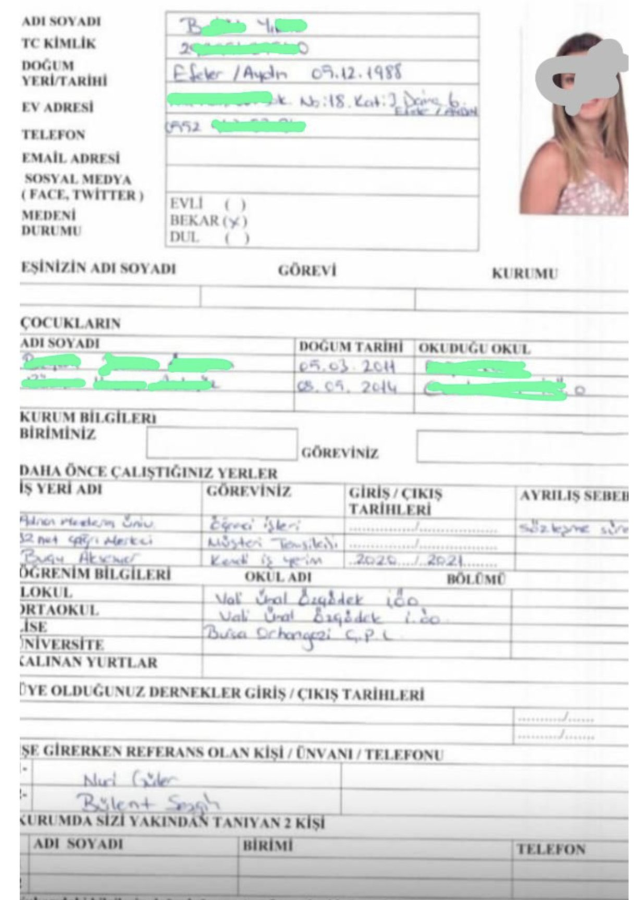 ADI SOYADI
TC KİMLİK
DOĞUM YERİ/TARİHİ Efeler / Aydın 09.12.1988
EV ADRESİ No:18. Kat:3 Daire 6.
TELEFON 0552
EMAİL ADRESİ
SOSYAL MEDYA
( FACE, TWİTTER )
MEDENİ DURUMU
EVLİ ( )
BEKAR (x)
DUL ( )
EŞİNİZİN ADI SOYADI GÖREVİ KURUMU
ÇOCUKLARIN
ADI SOYADI DOĞUM TARİHİ OKUDUĞU OKUL
05.03.2011
08.05.2014
KURUM BİLGİLERİ
BİRİMİNİZ GÖREVİNİZ
DAHA ÖNCE ÇALIŞTIĞINIZ YERLER
İŞ YERİ ADI GÖREVİNİZ GİRİŞ / ÇIKIŞ TARİHLERİ AYRILIŞ SEBEB
Adnan Menderes Üniv. Öğrenci işleri ............/............ Sözleşme süre
Çağrı Merkezi Müşteri Temsilcisi ............/............
Kendi iş yerim ..2020..../..2021......
ÖĞRENİM BİLGİLERİ OKUL ADI BÖLÜMÜ
LOKUL Vali Ünal Özgödek İ.Ö.O
ORTAOKUL Vali Ünal Özgödek İ.Ö.O.
İSE Bursa Orhangazi Ç.P.L.
ÜNİVERSİTE
KALINAN YURTLAR
ÜYE OLDUĞUNUZ DERNEKLER GİRİŞ / ÇIKIŞ TARİHLERİ
........../......
........../......
ŞE GİRERKEN REFERANS OLAN KİŞİ / ÜNVANI / TELEFONU
Nuri Güler
Bülent Sezgin
KURUMDA SİZİ YAKINDAN TANIYAN 2 KİŞİ
ADI SOYADI BİRİMİ TELEFON